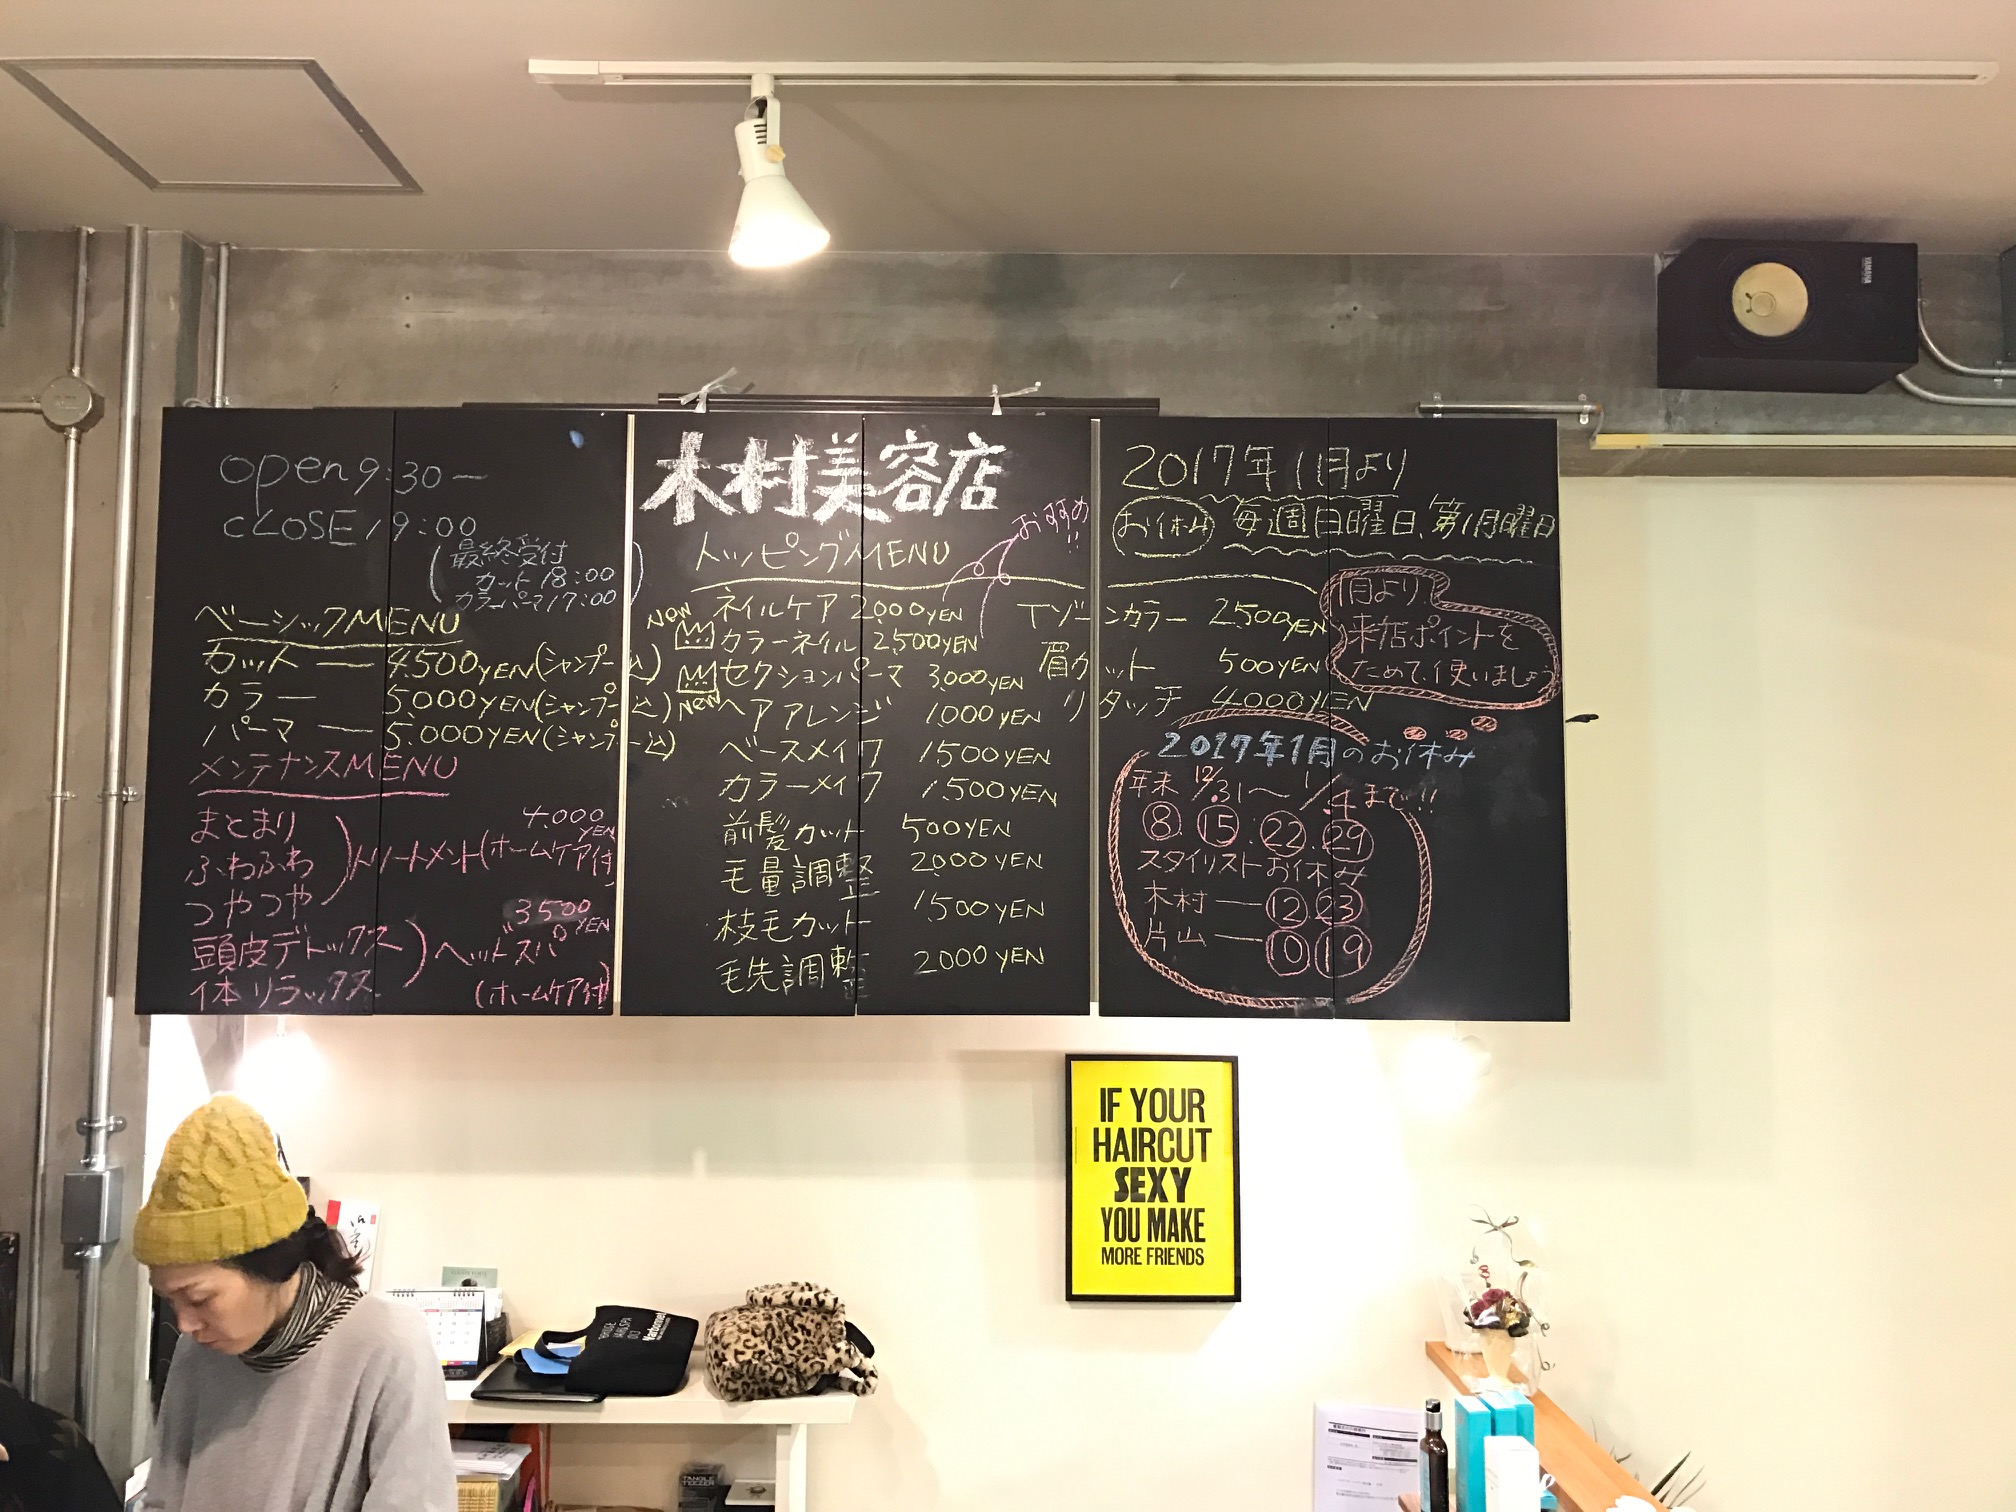 open 9:30ー
CLOSE 19:00
(最終受付
カット18:00
カラーパーマ17:00)
ベーシックMENU
カット ー 4,500YEN(シャンプー込)
カラー 5,000YEN(シャンプー込)
パーマ ー 5,000YEN(シャンプー込)
メンテナンスMENU
まとまり
ふわふわ
つやつや
トリートメント(ホームケア付)
4,000YEN
頭皮デトックス
体リラックス
ヘッドスパ
3500YEN
(ホームケア付)
木村美容店
トッピングMENU
おすすめ!!
New
ネイルケア 2,000YEN
カラーネイル 2,500YEN
セクションパーマ 3,000YEN
New
ヘアアレンジ 1,000YEN
ベースメイク 1,500YEN
カラーメイク 1,500YEN
前髪カット 500YEN
毛量調整 2,000YEN
枝毛カット 1,500YEN
毛先調整 2000YEN
Tゾーンカラー 2,500YEN
眉カット 500YEN
リタッチ 4,000YEN
2017年1月より
お休み 毎週日曜日、第1月曜日
1月より、
来店ポイントを
ためて、使いましょう
2017年1月のお休み
年末 12/31〜1/4まで!!
8. 15. 22. 29
スタイリストお休み
木村 ー 12. 23
片山 ー 10 19
YAMAHA
IF YOUR
HAIRCUT
SEXY
YOU MAKE
MORE FRIENDS
TANGLE
TEEZER